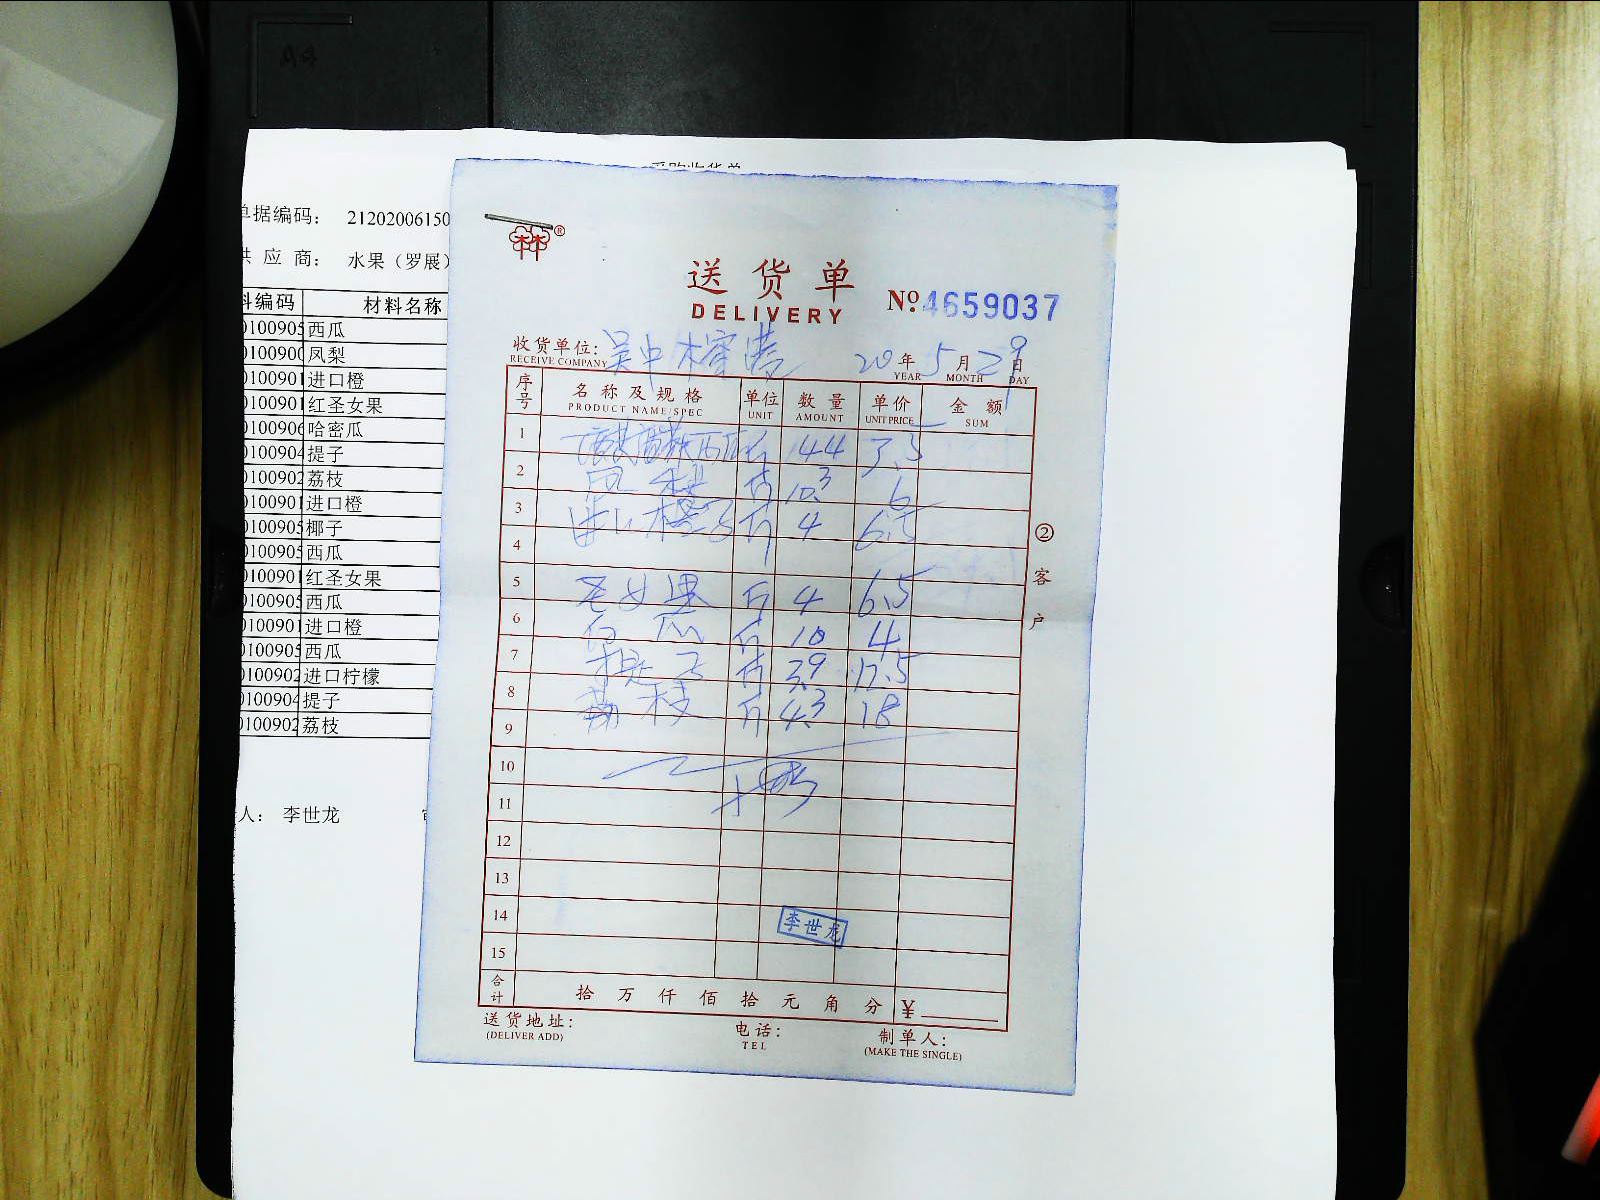 采购收货单
单据编码： 21202006150
供 应 商： 水果（罗展）
料编码 材料名称
0100905 西瓜
0100900 凤梨
0100901 进口橙
0100901 红圣女果
0100906 哈密瓜
0100904 提子
0100902 荔枝
0100901 进口橙
0100905 椰子
0100905 西瓜
0100901 红圣女果
0100905 西瓜
0100901 进口橙
0100905 西瓜
0100902 进口柠檬
0100904 提子
0100902 荔枝
人： 李世龙
林林®
送 货 单
DELIVERY
No. 4659037
收货单位: 吴中 20 年 5 月 29 日
RECEIVE COMPANY YEAR MONTH DAY
序号 名 称 及 规 格 单位 数 量 单价 金 额
PRODUCT NAME/SPEC UNIT AMOUNT UNIT PRICE SUM
1 西瓜 斤 144 3.5
2 凤梨 斤 10.3 6
3 进口橙子 斤 4 6.5
4
5 圣女果 斤 4 6.5
6 瓜 斤 10 4
7 提子 斤 3.9 17.5
8 荔枝 斤 4.3 18
9
10
11
12
13
14 李世龙
15
合计 拾 万 仟 佰 拾 元 角 分 ¥
送货地址: 电话: 制单人:
(DELIVER ADD) TEL (MAKE THE SINGLE)
②客户